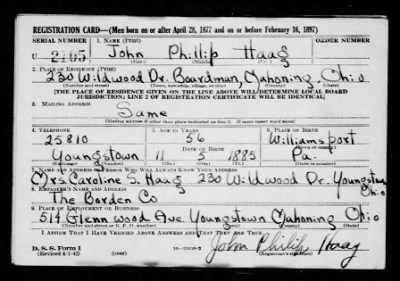 REGISTRATION CARD—(Men born on or after April 28, 1877 and on or before February 16, 1897)
SERIAL NUMBER 1. NAME (Print) ORDER NUMBER
U 2105 John Phillip Haag
(First) (Middle) (Last)
2. PLACE OF RESIDENCE (Print)
230 Wildwood Dr. Boardman, Mahoning, Ohio
(Number and street) (Town, township, village, or city) (County) (State)
[THE PLACE OF RESIDENCE GIVEN ON THE LINE ABOVE WILL DETERMINE LOCAL BOARD
JURISDICTION; LINE 2 OF REGISTRATION CERTIFICATE WILL BE IDENTICAL]
3. MAILING ADDRESS
Same
[Mailing address if other than place indicated on line 2. If same insert word same]
4. TELEPHONE 5. AGE IN YEARS 6. PLACE OF BIRTH
25810 56 Williamsport
DATE OF BIRTH
Youngstown 11 5 1885 Pa.
(Exchange) (Number) (Mo.) (Day) (Yr.) (State or country)
7. NAME AND ADDRESS OF PERSON WHO WILL ALWAYS KNOW YOUR ADDRESS
Mrs Caroline S. Haag 230 Wildwood Dr. Youngstown Ohio
8. EMPLOYER'S NAME AND ADDRESS
The Borden Co
9. PLACE OF EMPLOYMENT OR BUSINESS
514 Glenwood Ave. Youngstown Mahoning Ohio
(Number and street or R. F. D. number) (Town) (County) (State)
I AFFIRM THAT I HAVE VERIFIED ABOVE ANSWERS AND THAT THEY ARE TRUE.
D. S. S. Form 1
(Revised 4-1-42) (over)
John Philip Haag